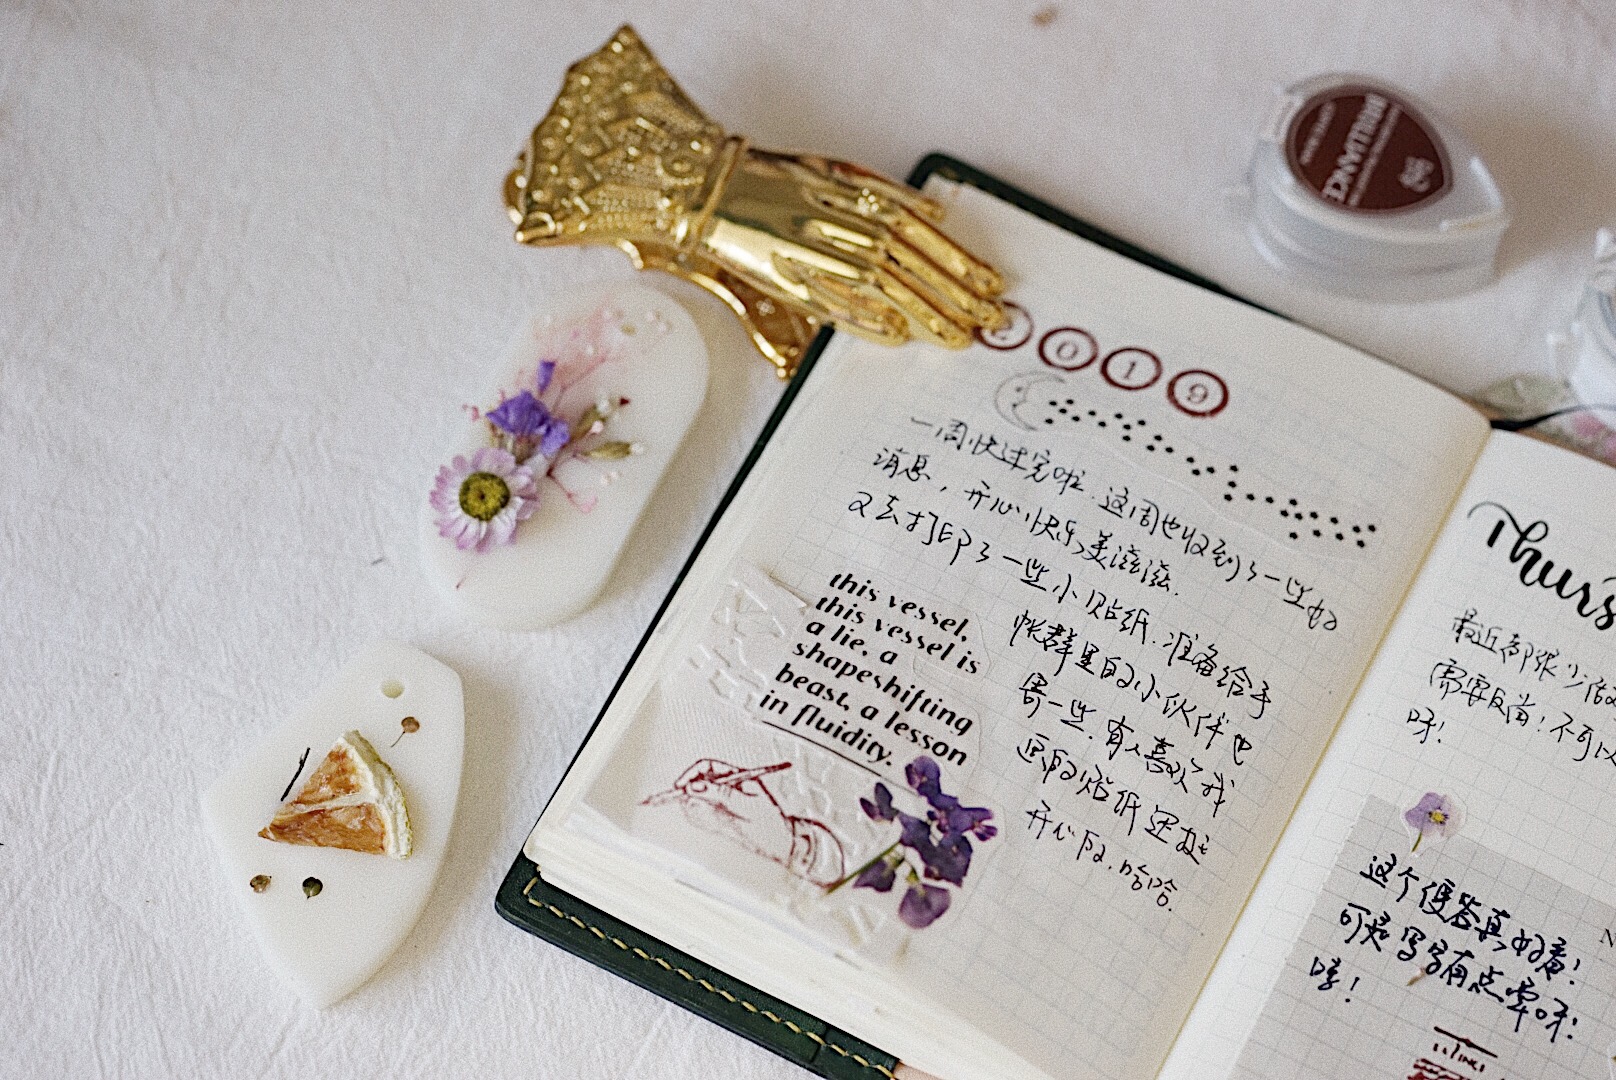 BRILLIANCE
2019
一周快过完啦.这周也收到了一些好
消息,开心快乐美滋滋.
又去打印了一些小贴纸.准备给手
帐群里的小伙伴也
寄一些.有人喜欢我
画的贴纸还挺
开心的.哈哈.
this vessel,
this vessel is
a lie, a
shapeshifting
beast, a lesson
in fluidity.
Thurs
最近都很少做
需要反省!不可以
呀!
这个便签真好看!
可是写字有点晕呀!
咳!